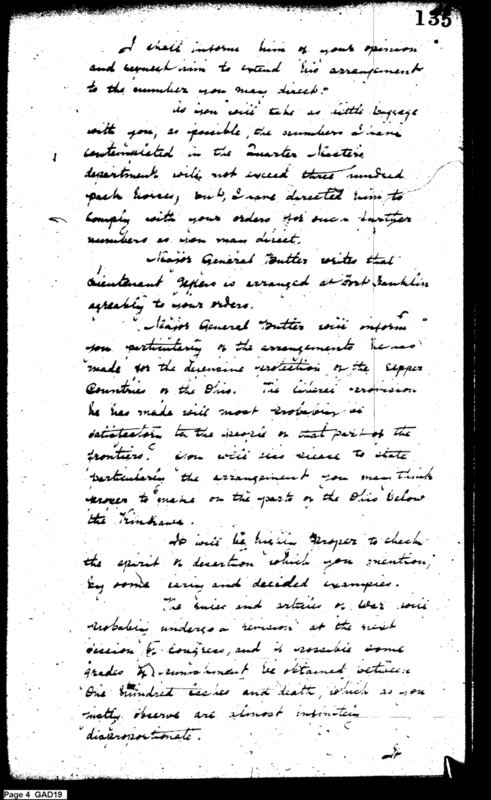 135
I shall inform him of your opinion
and request him to extend his arrangement
to the number you may direct.
As you will take as little baggage
with you, as possible, the numbers I have
contemplated in the Quarter Masters
department will not exceed three hundred
pack horses; but, I have directed him to
comply with your orders for such further
numbers as you may direct.
Major General Butler writes that
Lieutenant Jeffers is arranged at Fort Franklin
agreably to your orders.
Major General Butler will inform
you particularly of the arrangements he has
made for the defensive protection of the upper
Countries of the Ohio. The liberal provision
he has made will most probably be
satisfactory to the people of that part of the
frontiers. You will also please to state
particularly the arrangement you may think
proper to make on the parts of the Ohio below
the Kenhawa.
It will be highly proper to check
the spirit of desertion which you mention,
by some early and decided examples.
The rules and articles of War will
probably undergo a revision at the next
session of Congress, and it possible some
grades of punishment be obtained between
One Hundred lashes and death, which as you
justly observe are almost infinitely
disproportionate.
It
Page 4 GAD19